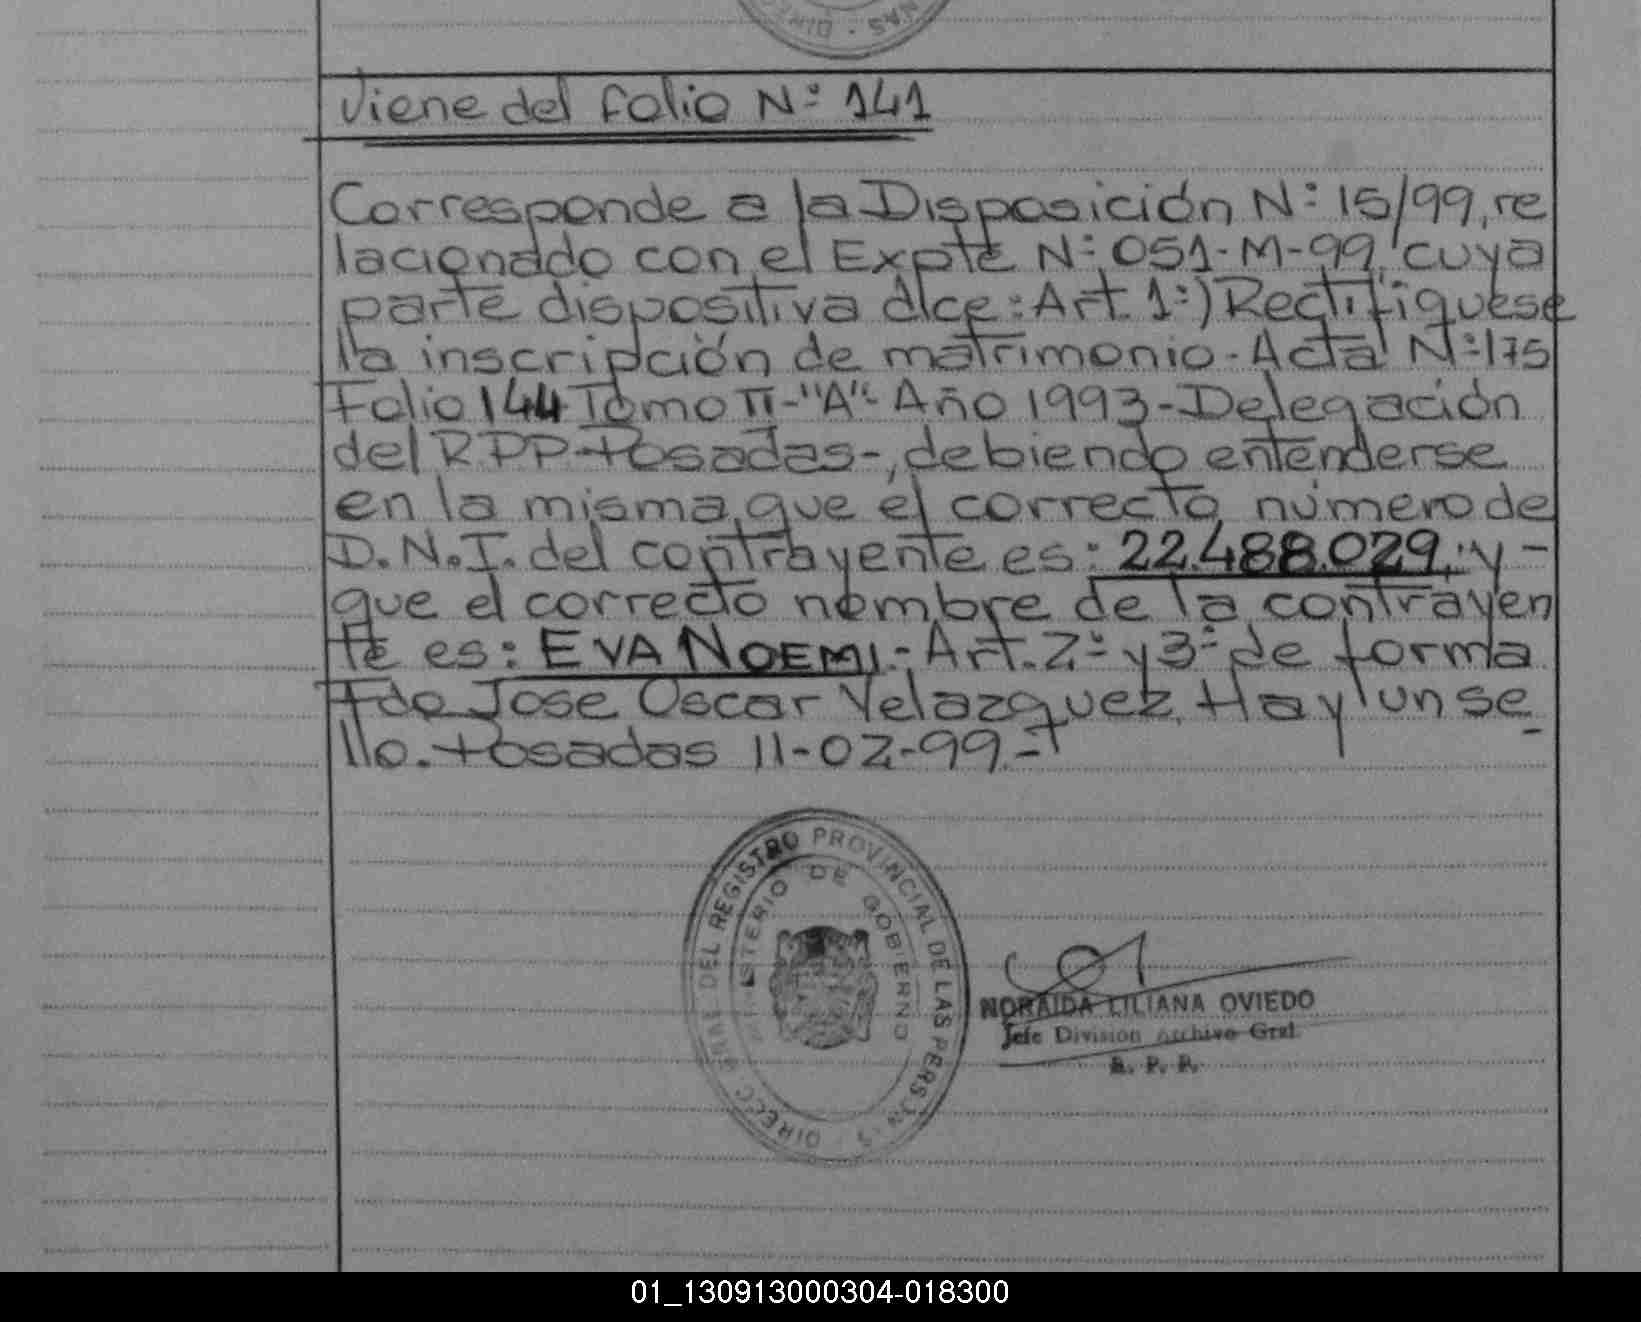 NAS - DIREC
Viene del folio N° 141
Corresponde a la Disposición N° 15/99, re
lacionado con el Expte N° 051-M-99, cuya
parte dispositiva dice: Art. 1°) Rectifíquese
la inscripción de matrimonio - Acta N° 175
Folio 144 Tomo II-"A"- Año 1993 - Delegación
del R.P.P. Posadas-, debiendo entenderse
en la misma, que el correcto número de
D.N.I. del contrayente es: 22.488.029, y -
que el correcto nombre de la contrayen
te es: EVA NOEMI.- Art. 2° y 3° de forma
Fdo Jose Oscar Velazquez. Hay un se
llo. Posadas 11-02-99.-
DIRECC GRAL DEL REGISTRO PROVINCIAL DE LAS PERSONAS
MINISTERIO DE GOBIERNO
NORAIDA LILIANA OVIEDO
Jefe Division Archivo Gral.
R. P. P.
01_130913000304-018300